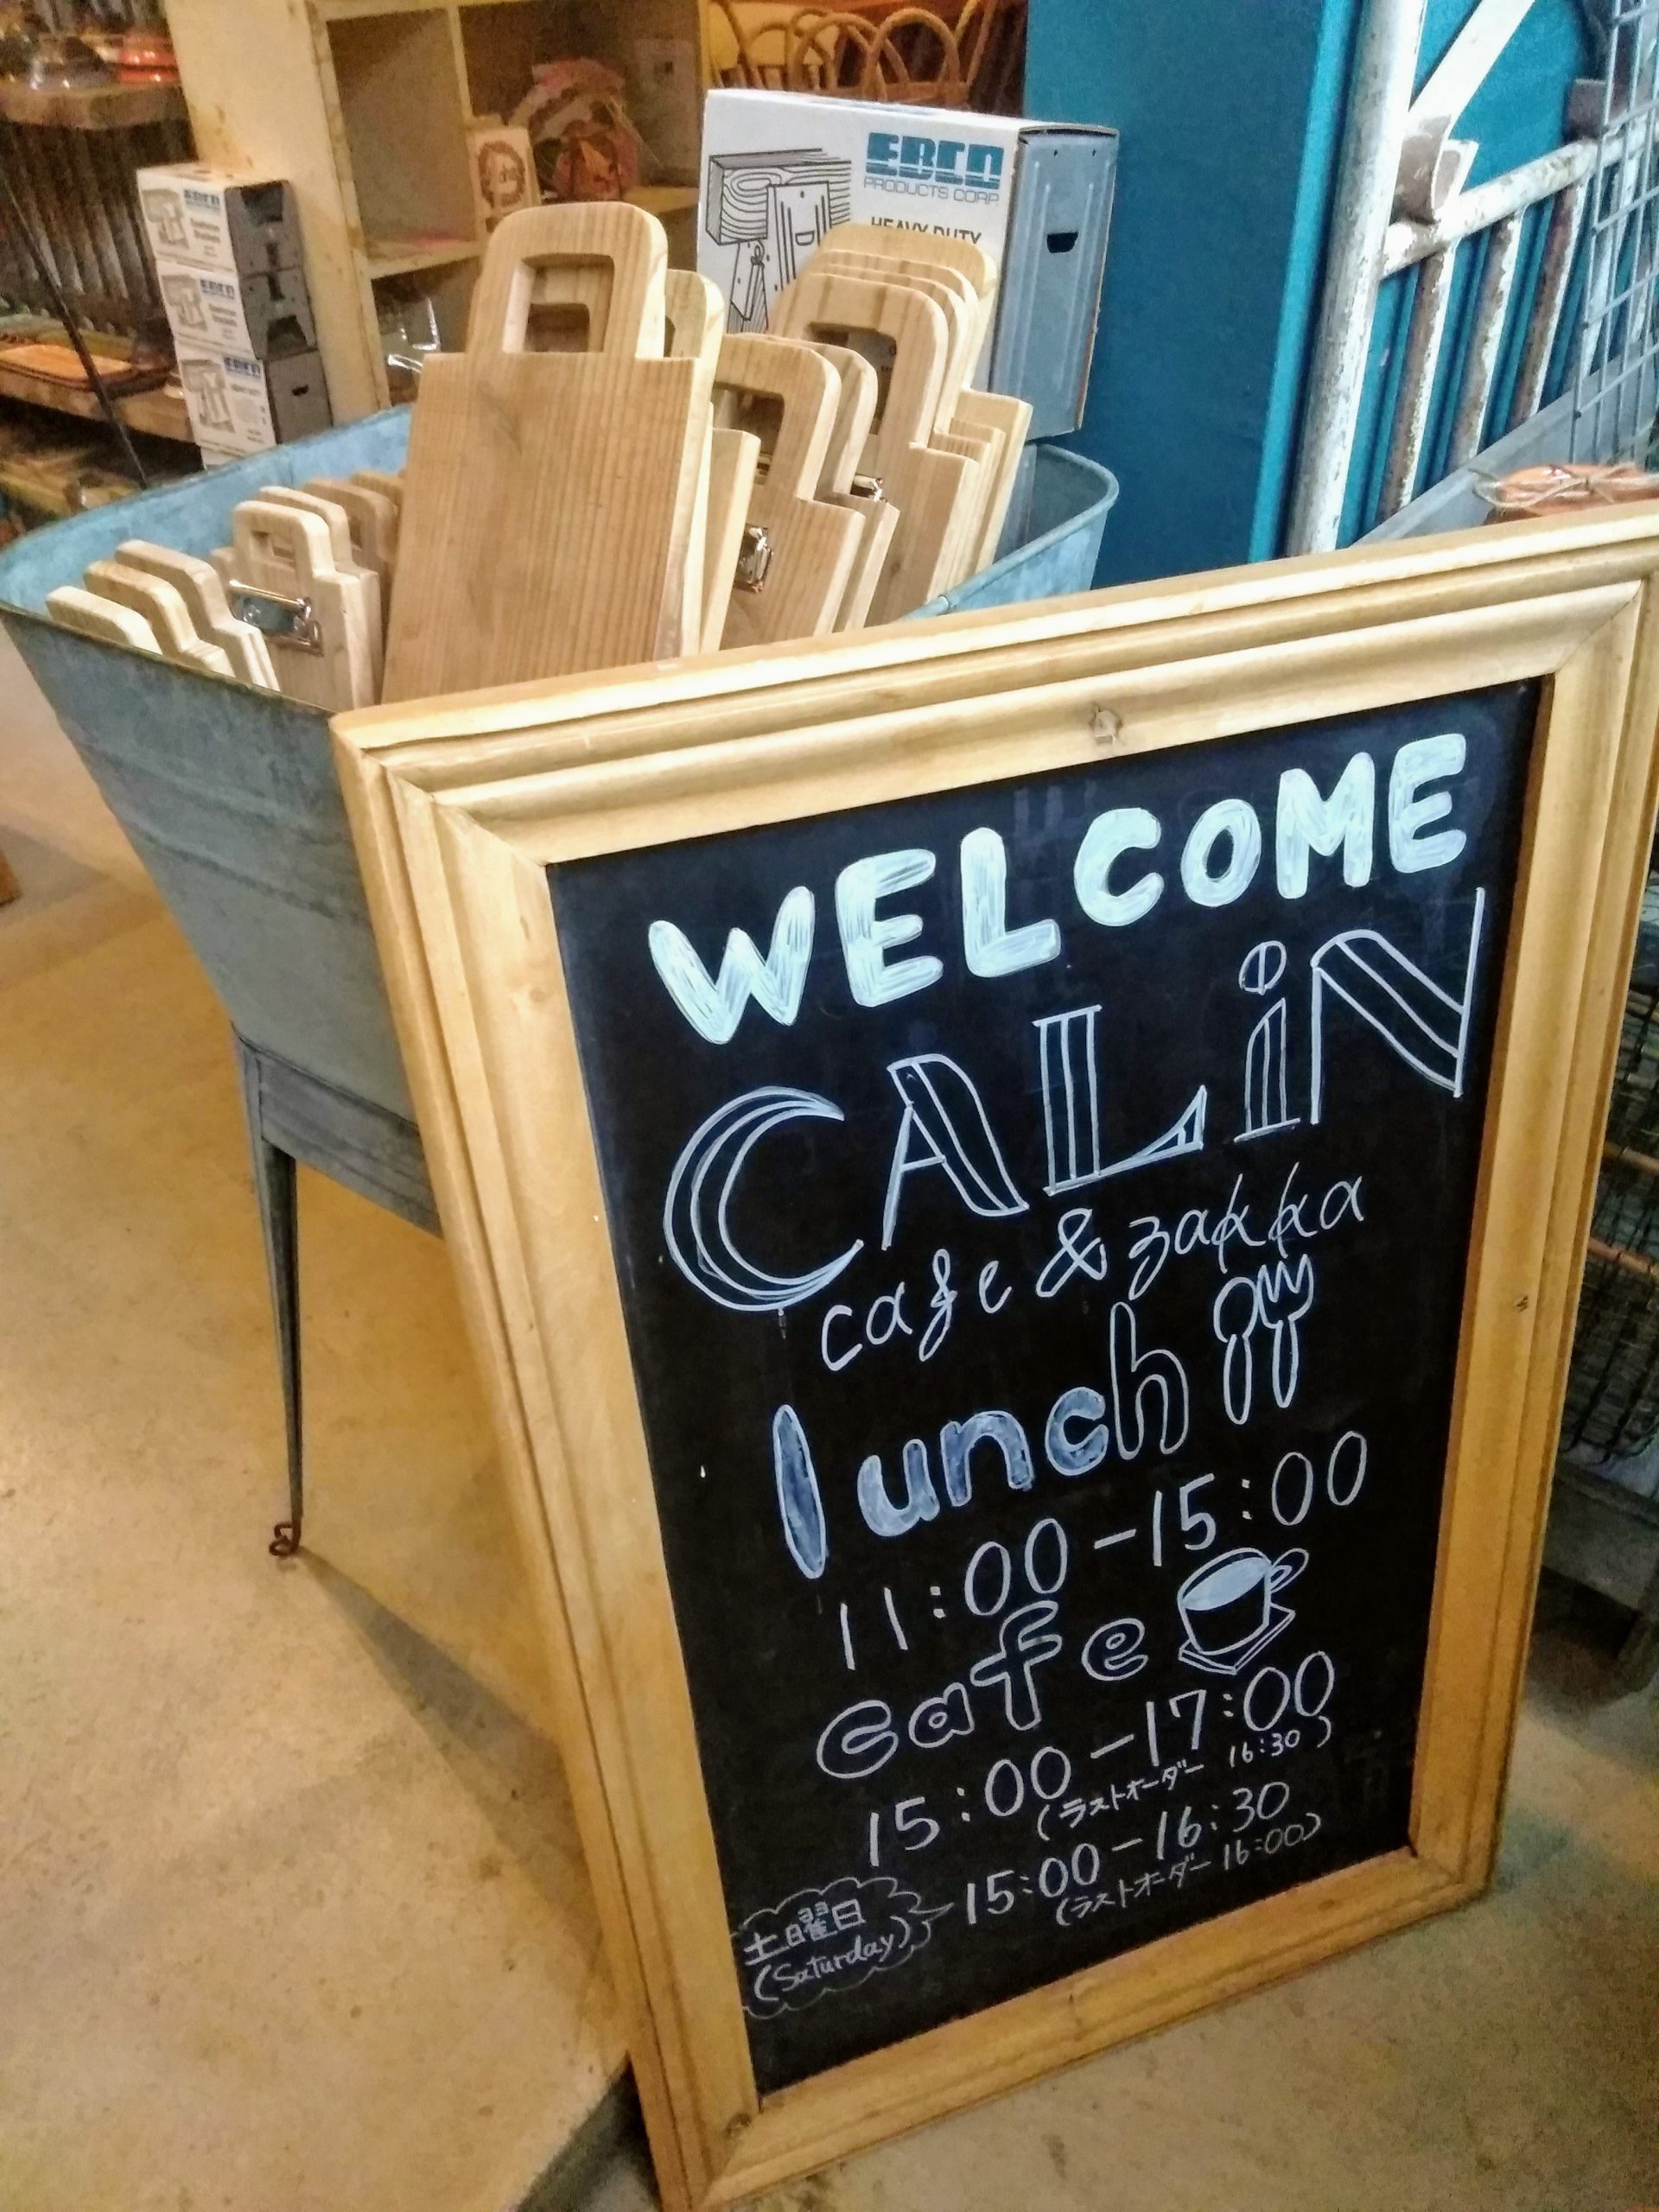 EBCO
PRODUCTS CORP.
HEAVY DUTY
EBCO
EBCO
EBCO
WELCOME
CALiN
cafe & zakka
lunch
11:00-15:00
cafe
15:00-17:00
(ラストオーダー 16:30)
土曜日
(Saturday)
15:00-16:30
(ラストオーダー 16:00)